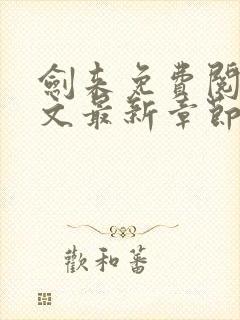 劍来免費閱
文最新章節
歡和蕃